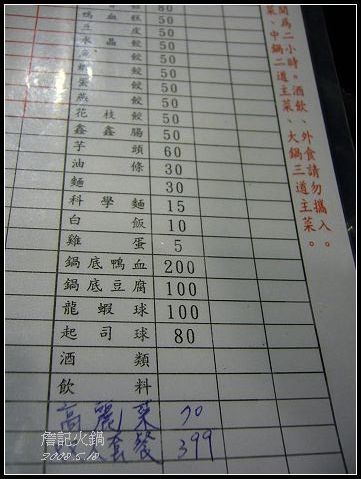 糕 80
鴨血糕 50
皮 50
水晶餃 50
餃 50
蛋餃 50
燕餃 50
花枝餃 50
鑫鑫腸 50
芋頭 60
油條 30
麵 30
科學麵 15
白飯 10
雞蛋 5
鍋底鴨血 200
鍋底豆腐 100
龍蝦球 100
起司球 80
酒類
飲料
高麗菜 70
套餐 399
間為二小時。酒飲、外食請勿攜入。
菜、中鍋二道主菜、大鍋三道主菜。
詹記火鍋
2008.5.10